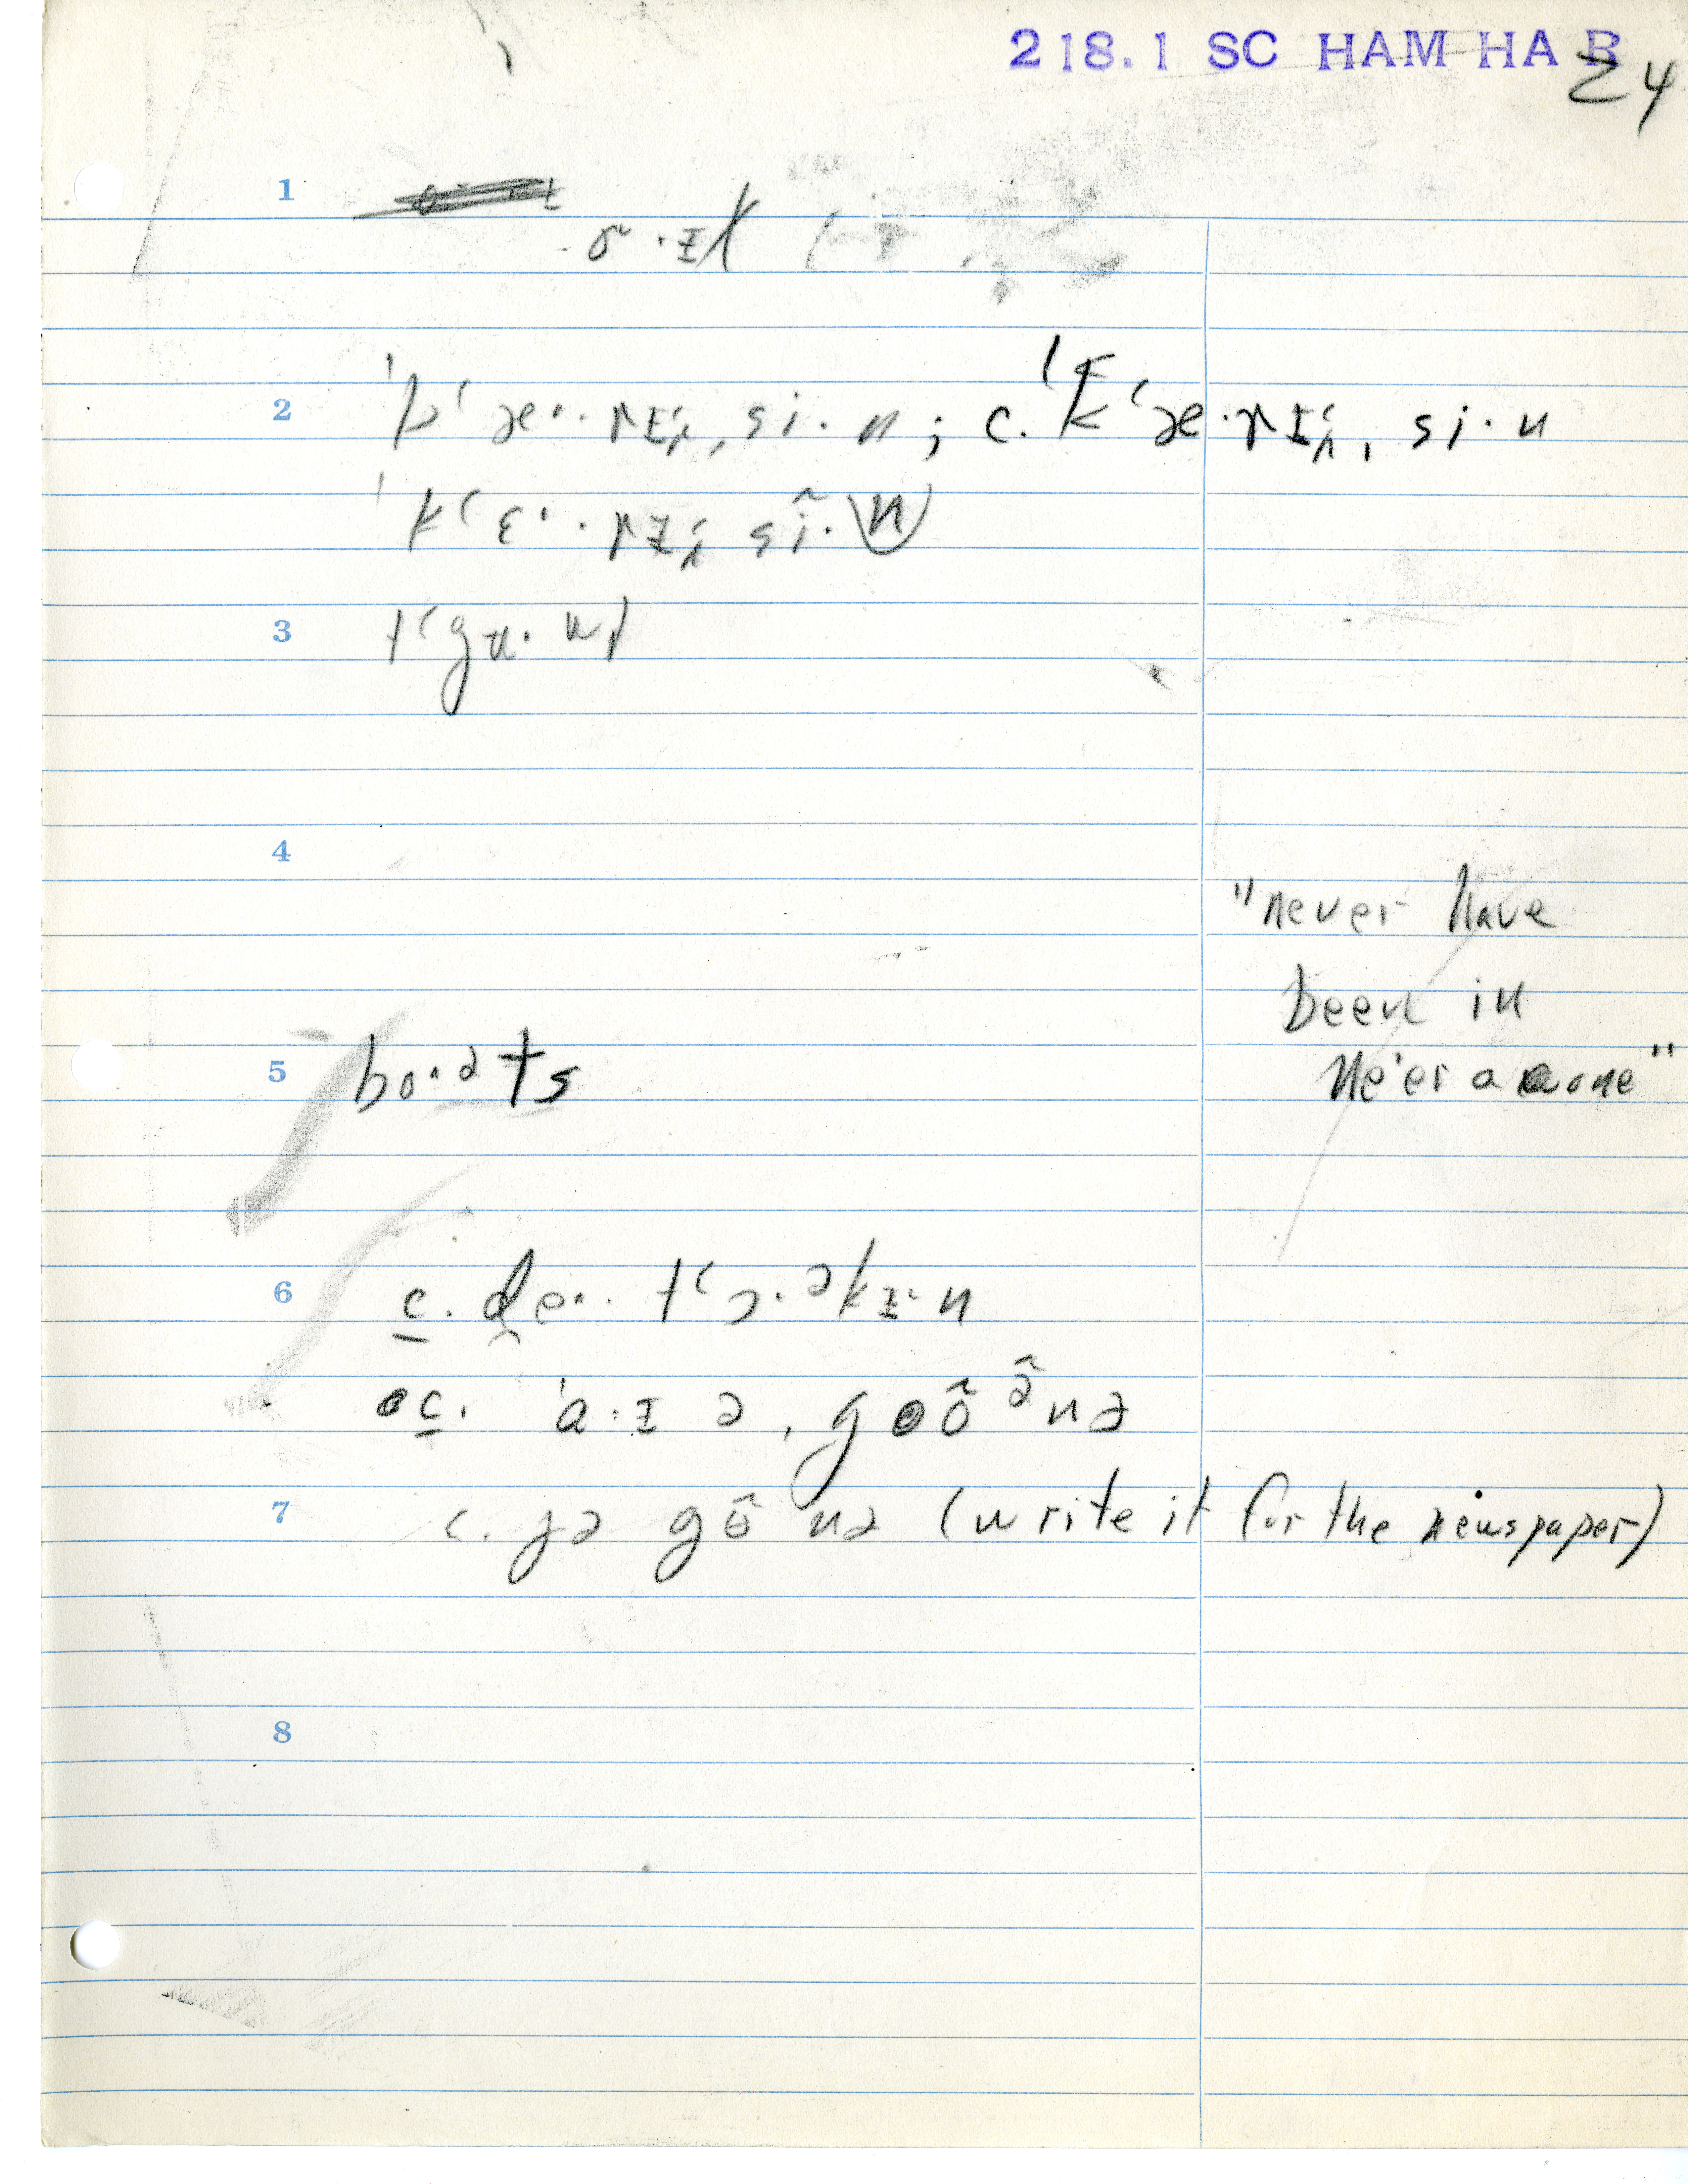 218.1 SC HAM HA B
24
1
2 ˈkʽæ˔·rɪʽn,si·n; c. ˈkʽæ·rɪʽn,si·n
ˈkʽɛ˔·rɪʽn sĩ·n
3
4
"never have
been in
Ne'er a one"
5 bo˔·əts
6 c. de˔· tʽɔ·əkɪ˔n
c. ˈa·ɪ ə ˌgõə̃nə
7 c. jə gõnə (write it for the newspaper)
8